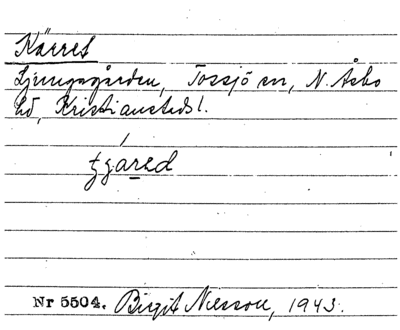 Kärret
Ljungagården, Tossjö sn, N. Åsbo
hd, Kristianstads l.
tjάred
Nr 5504. Birgit Nilsson, 1943.